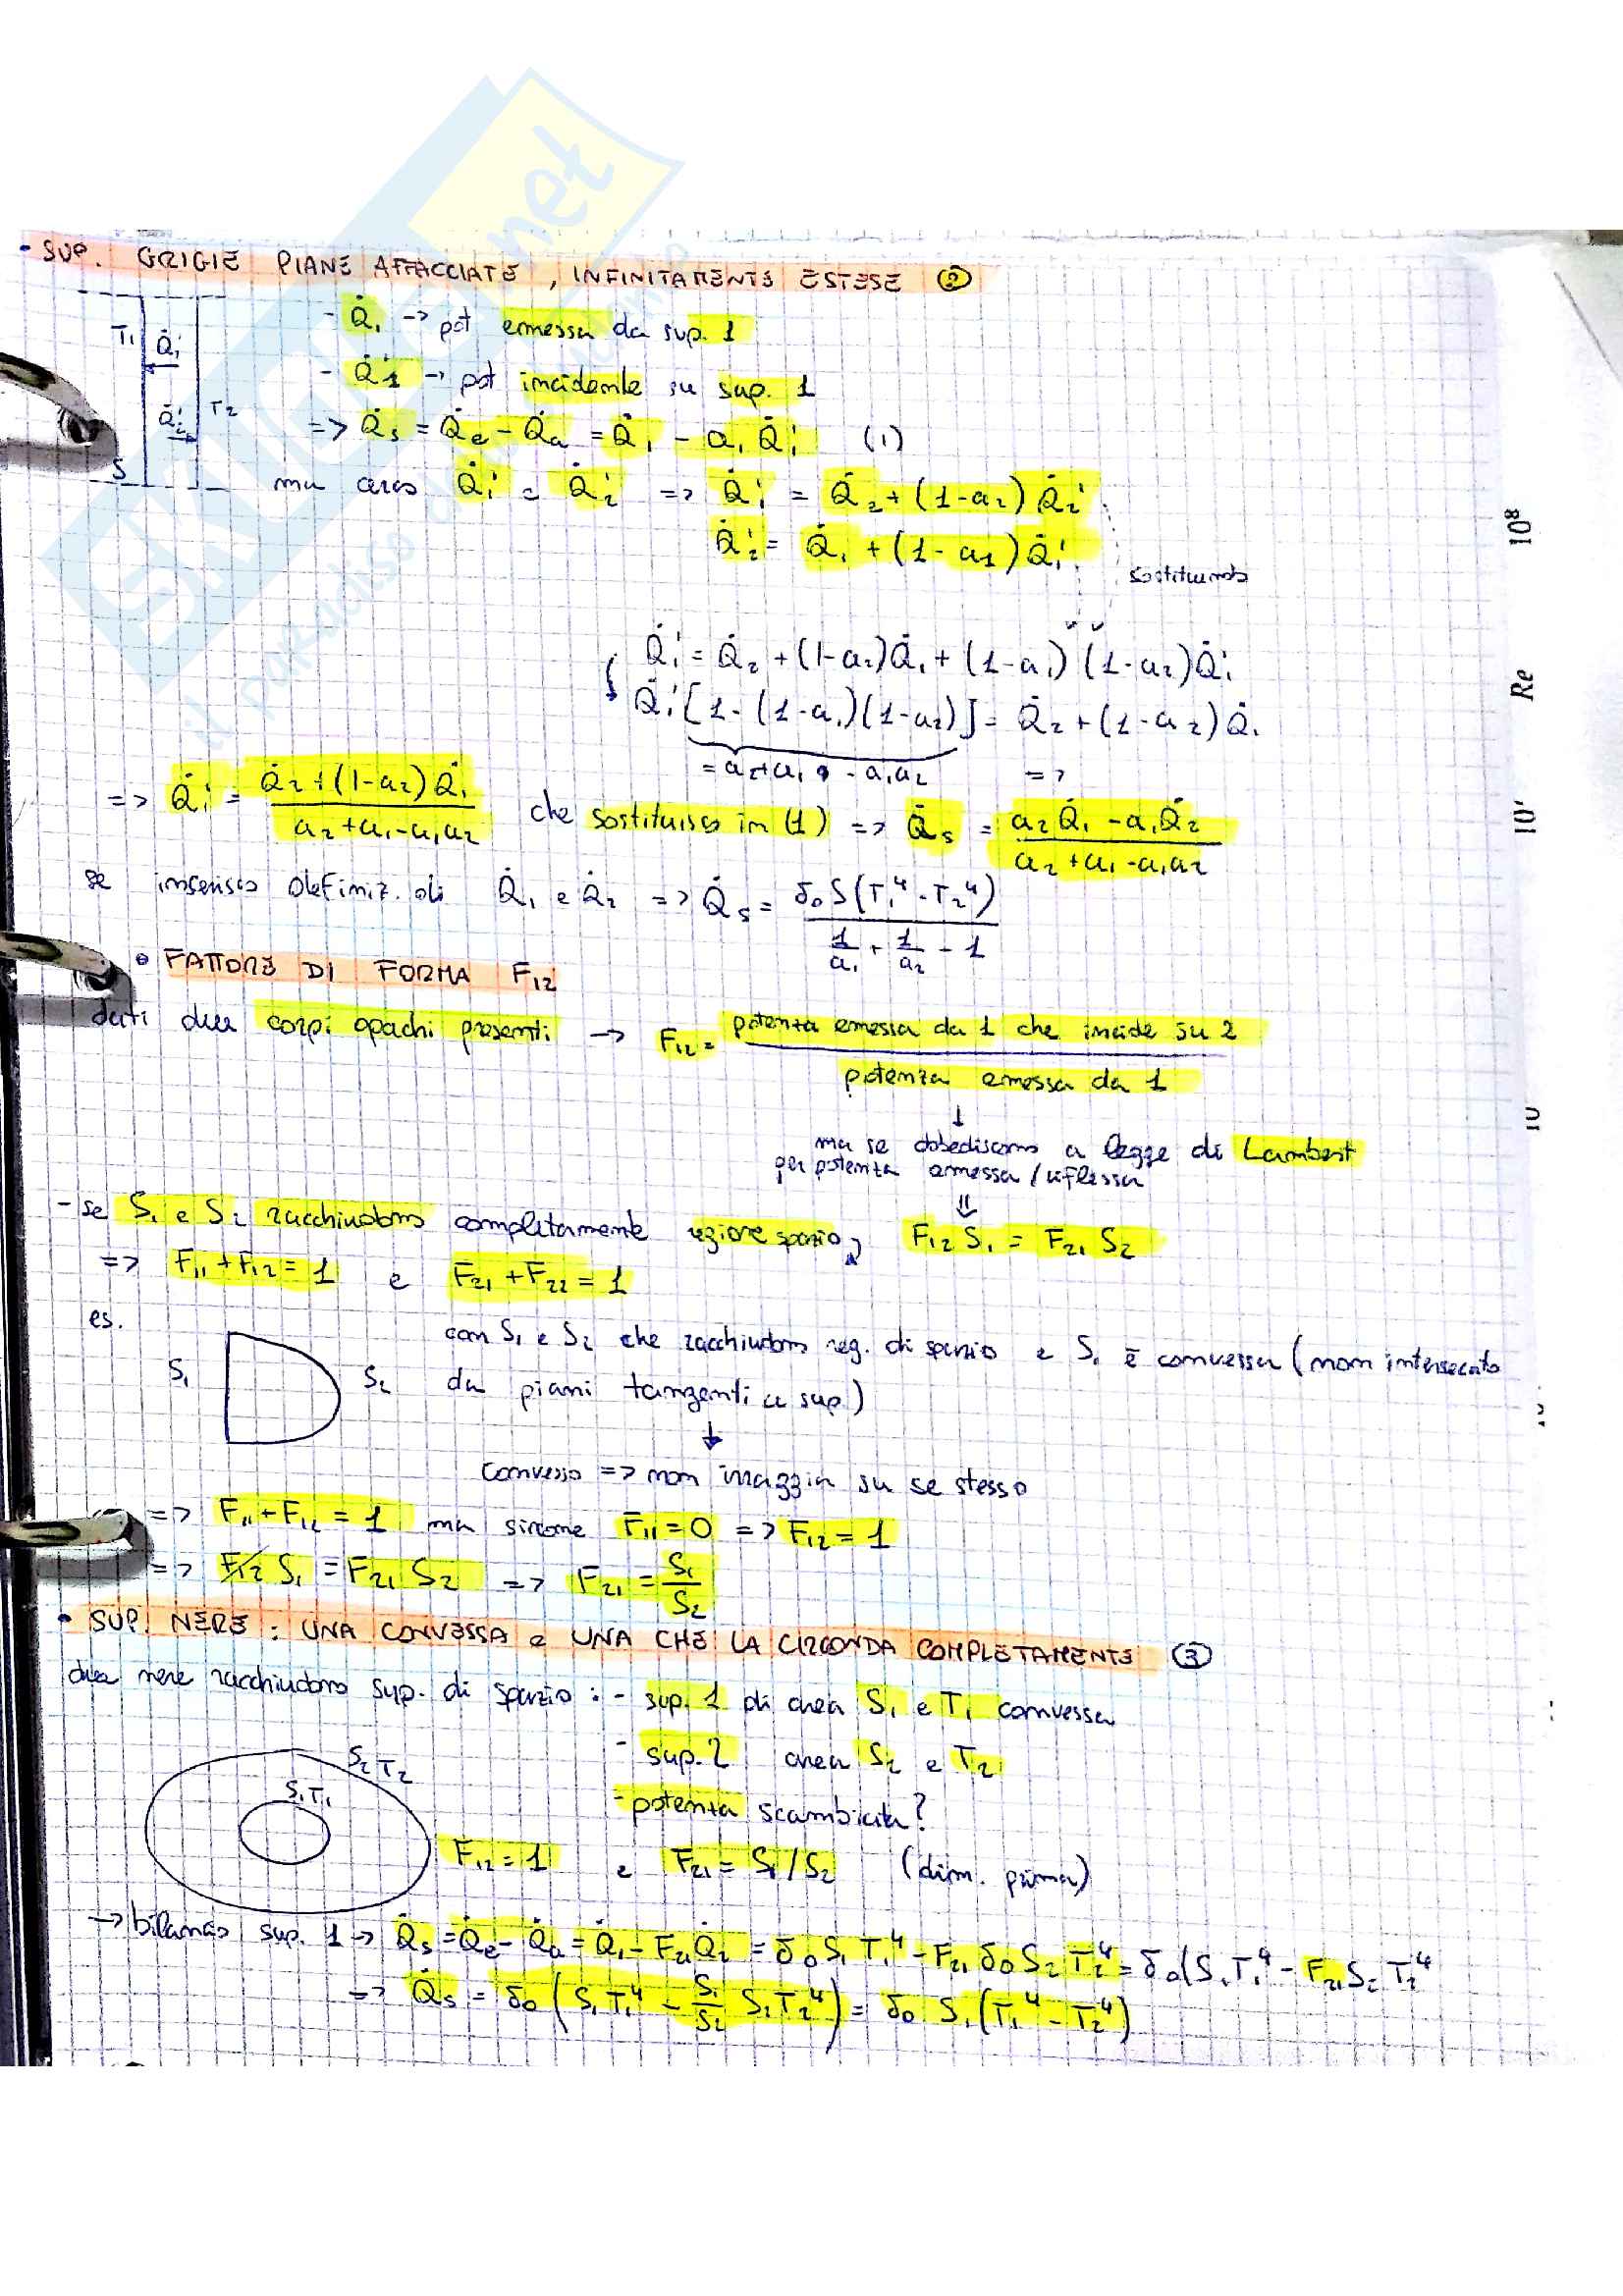 - SUP. GRIGIE PIANE AFFACCIATE, INFINITAMENTE ESTESE (2)
- Q̇₁ -> pot emessa da sup. 1
T₁ Q̇₁'
- Q̇'1 -> pot incidente su sup. 1
Q̇₂' T₂
=> Q̇s = Q̇e - Q̇a = Q̇₁ - a₁ Q̇₁' (1)
S
ma cerco Q̇₁' e Q̇₂' => Q̇₁' = Q̇₂ + (1-a₂) Q̇₂'
Q̇₂' = Q̇₁ + (1-a1) Q̇₁'
10⁸
sostituendo
Q̇₁' = Q̇₂ + (1-a₂)Q̇₁ + (1-a₁) (1-a₂)Q̇₁'
Re
Q̇₁'[1-(1-a₁)(1-a₂)] = Q̇₂ + (1-a₂)Q̇₁
= a₂+a₁ - a₁a₂ =>
=> Q̇₁' = (Q̇₂+(1-a₂)Q̇₁)/(a₂+a₁-a₁a₂) che sostituisco in (1) => Q̇s = (a₂Q̇₁ - a₁Q̇₂)/(a₂+a₁-a₁a₂)
10'
se inserisco definiz. di Q̇₁ e Q̇₂ => Q̇s = δ₀ S(T₁⁴ - T₂⁴)/(1/a₁ + 1/a₂ - 1)
• FATTORE DI FORMA F₁₂
dati due corpi opachi presenti -> F₁₂ = potenza emessa da 1 che incide su 2
potenza emessa da 1
10
↓
ma se obbediscono a legge di Lambert
per potenza emessa / riflessa
⇓
- se S₁ e S₂ racchiudono completamente regione spazio, F₁₂ S₁ = F₂₁ S₂
=> F₁₁ + F₁₂ = 1 e F₂₁ + F₂₂ = 1
es.
con S₁ e S₂ che racchiudono reg. di spazio e S₁ è convessa (non intersecato
S₁ S₂ da piani tangenti a sup)
↓
convesso => non irraggia su se stesso
=> F₁₁ + F₁₂ = 1 ma siccome F₁₁ = 0 => F₁₂ = 1
=> F₁₂ S₁ = F₂₁ S₂ => F₂₁ = S₁/S₂
• SUP. NERE : UNA CONVESSA e UNA CHE LA CIRCONDA COMPLETAMENTE (3)
due nere racchiudono sup. di spazio : - sup. 1 di area S₁ e T₁ convessa
S₂ T₂ - sup. 2 area S₂ e T₂
S₁ T₁ - potenza scambiata?
F₁₂ = 1 e F₂₁ = S₁/S₂ (dim. prima)
-> bilancio sup. 1 -> Q̇s = Q̇e - Q̇a = Q̇₁ - F₂₁Q̇₂ = δ₀ S₁ T₁⁴ - F₂₁ δ₀ S₂ T₂⁴ = δ₀(S₁T₁⁴ - F₂₁S₂ T₂⁴
=> Q̇s = δ₀ (S₁T₁⁴ - S₁/S₂ S₂T₂⁴) = δ₀ S₁(T₁⁴ - T₂⁴)